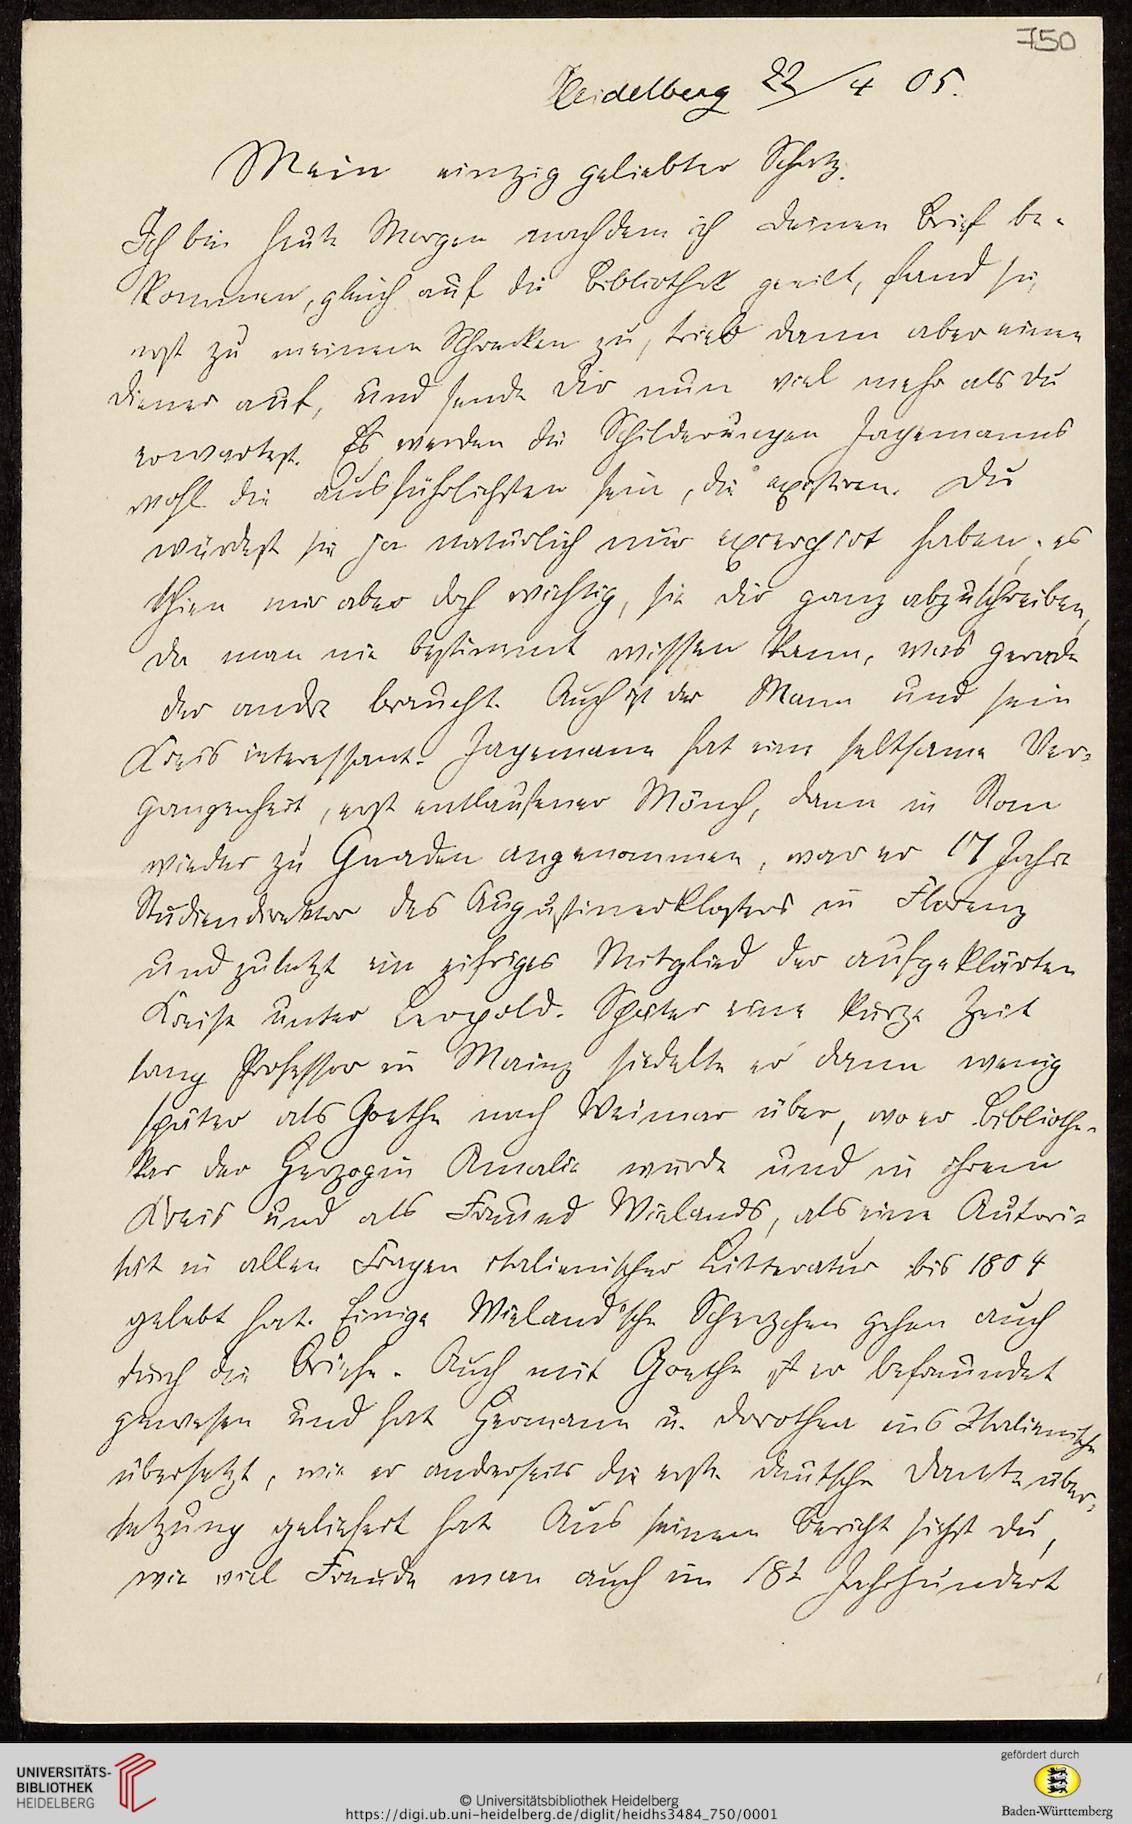 750
Heidelberg 22/4 05.
Mein einzig geliebter Schatz.
Ich bin heute Morgen nachdem ich deinen Brief be-
kommen, gleich auf die Bibliothek geeilt, fand sie
erst zu meinem Schrecken zu, trieb dann aber einen
Diener auf, und sende dir nun viel mehr als du
erwartest. Es werden die Schilderungen Jagemanns
wohl die ausführlichsten sein, die existiren. Du
würdest sie ja natürlich nur excerpirt haben, es
schien mir aber doch wichtig, sie dir ganz abzuschreiben,
da man nie bestimmt wissen kann, was gerade
der andre braucht. Auch ist der Mann und sein
Kreis interessant. Jagemann hat eine seltsame Ver-
gangenheit, erst entlaufener Mönch, dann in Rom
wieder zu Gnaden angenommen, war er 17 Jahre
Studiendirektor des Augustinerklosters in Florenz
und zuletzt ein eifriges Mitglied der aufgeklärten
Kreise unter Leopold. Später eine kurze Zeit
lang Professor in Mainz siedelte er dann wenig
später als Goethe nach Weimar über, wo er Bibliothe-
kar der Herzogin Amalie wurde und in ihrem
Kreis und als Freund Wielands, als eine Autori-
tät in allen Fragen italienischer Litteratur bis 1804
gelebt hat. Einige Wieland'sche Scherzchen gehen auch
durch die Briefe. Auch mit Goethe ist er befreundet
gewesen und hat Hermann u. Dorothea ins Italienische
übersetzt, wie er anderseits die erste deutsche Dante über-
setzung geliefert hat. Aus seinem Bericht siehst du,
wie viel Freude man auch im 18t Jahrhundert
UNIVERSITÄTS-
BIBLIOTHEK
HEIDELBERG
© Universitätsbibliothek Heidelberg
https://digi.ub.uni-heidelberg.de/diglit/heidhs3484_750/0001
gefördert durch
Baden-Württemberg